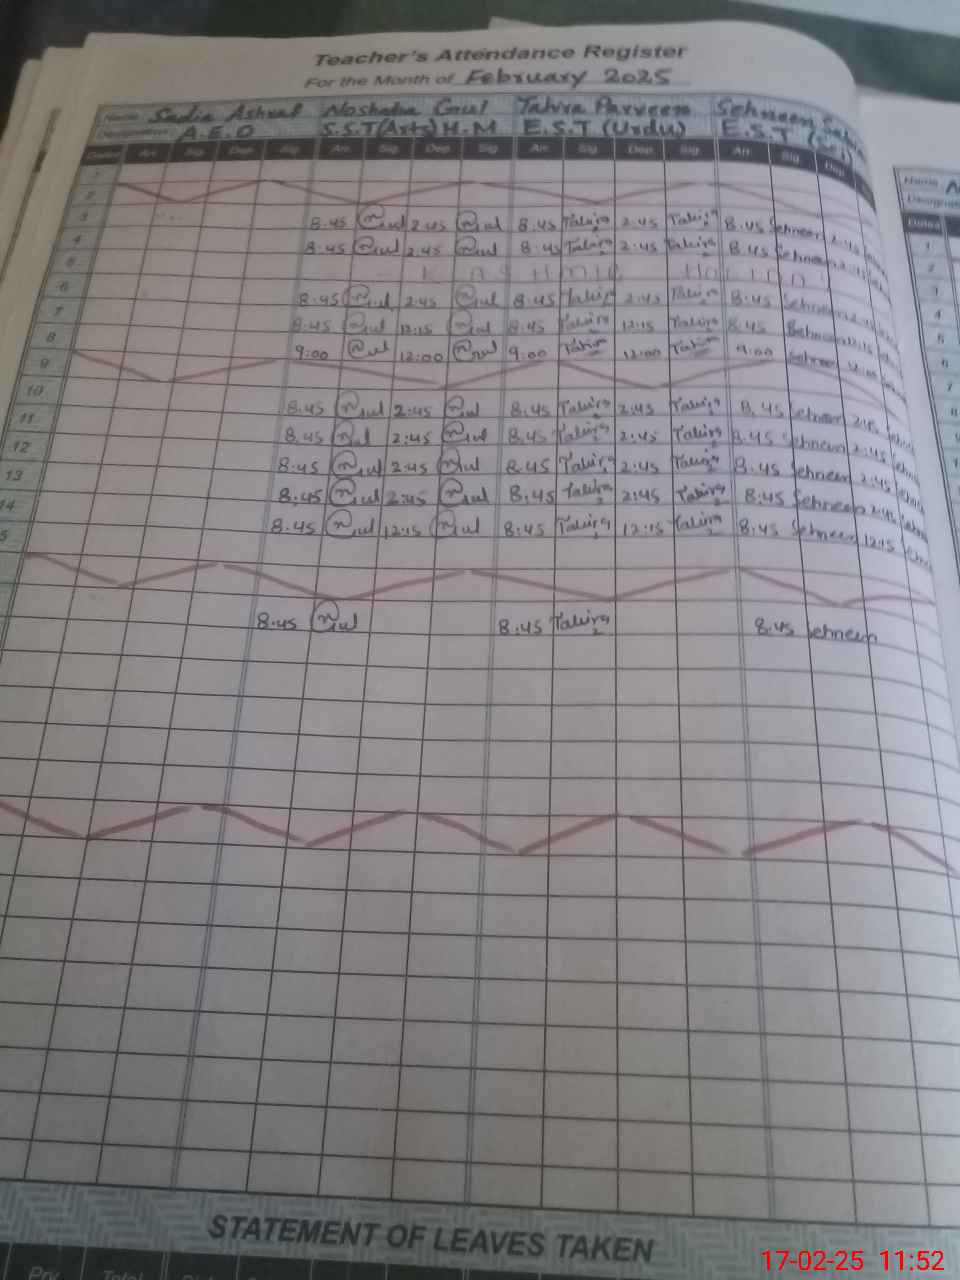 Teacher's Attendance Register
For the Month of February 2025
Name Sadia Ashraf Noshaba Gul Tahira Parveen Sehneen
Designation A.E.O S.S.T(Arts) H.M E.S.T (Urdu) E.S.T
Dates Arr. Sig. Dep. Sig. Arr. Sig. Dep. Sig. Arr. Sig. Dep. Sig. Arr. Sig. Dep.
1
2
3 8.45 Gul 2:45 Gul 8.45 Tahira 2:45 Tahira 8.45 Sehneen 2:45
4 8.45 Gul 2:45 Gul 8.45 Tahira 2:45 Tahira 8.45 Sehneen 2:45
5 KASHMIR HOLIDAY
6 8:45 Gul 2:45 Gul 8.45 Tahira 2:45 Tahira 8.45 Sehneen 2:45
7 8:45 Gul 12:15 Gul 8.45 Tahira 12:15 Tahira 8.45 Sehneen 12:15
8 9:00 Gul 12:00 Gul 9:00 Tahira 12:00 Tahira 9:00 Sehneen 12:00
9
10 8.45 Gul 2:45 Gul 8.45 Tahira 2:45 Tahira 8.45 Sehneen 2:45
11 8.45 Gul 2:45 Gul 8.45 Tahira 2:45 Tahira 8.45 Sehneen 2:45
12 8.45 Gul 2:45 Gul 8.45 Tahira 2:45 Tahira 8.45 Sehneen 2:45
13 8.45 Gul 2:45 Gul 8.45 Tahira 2:45 Tahira 8.45 Sehneen 2:45
14 8.45 Gul 12:15 Gul 8.45 Tahira 12:15 Tahira 8.45 Sehneen 12:15
5
8.45 Gul 8.45 Tahira 8.45 Sehneen
STATEMENT OF LEAVES TAKEN
17-02-25 11:52